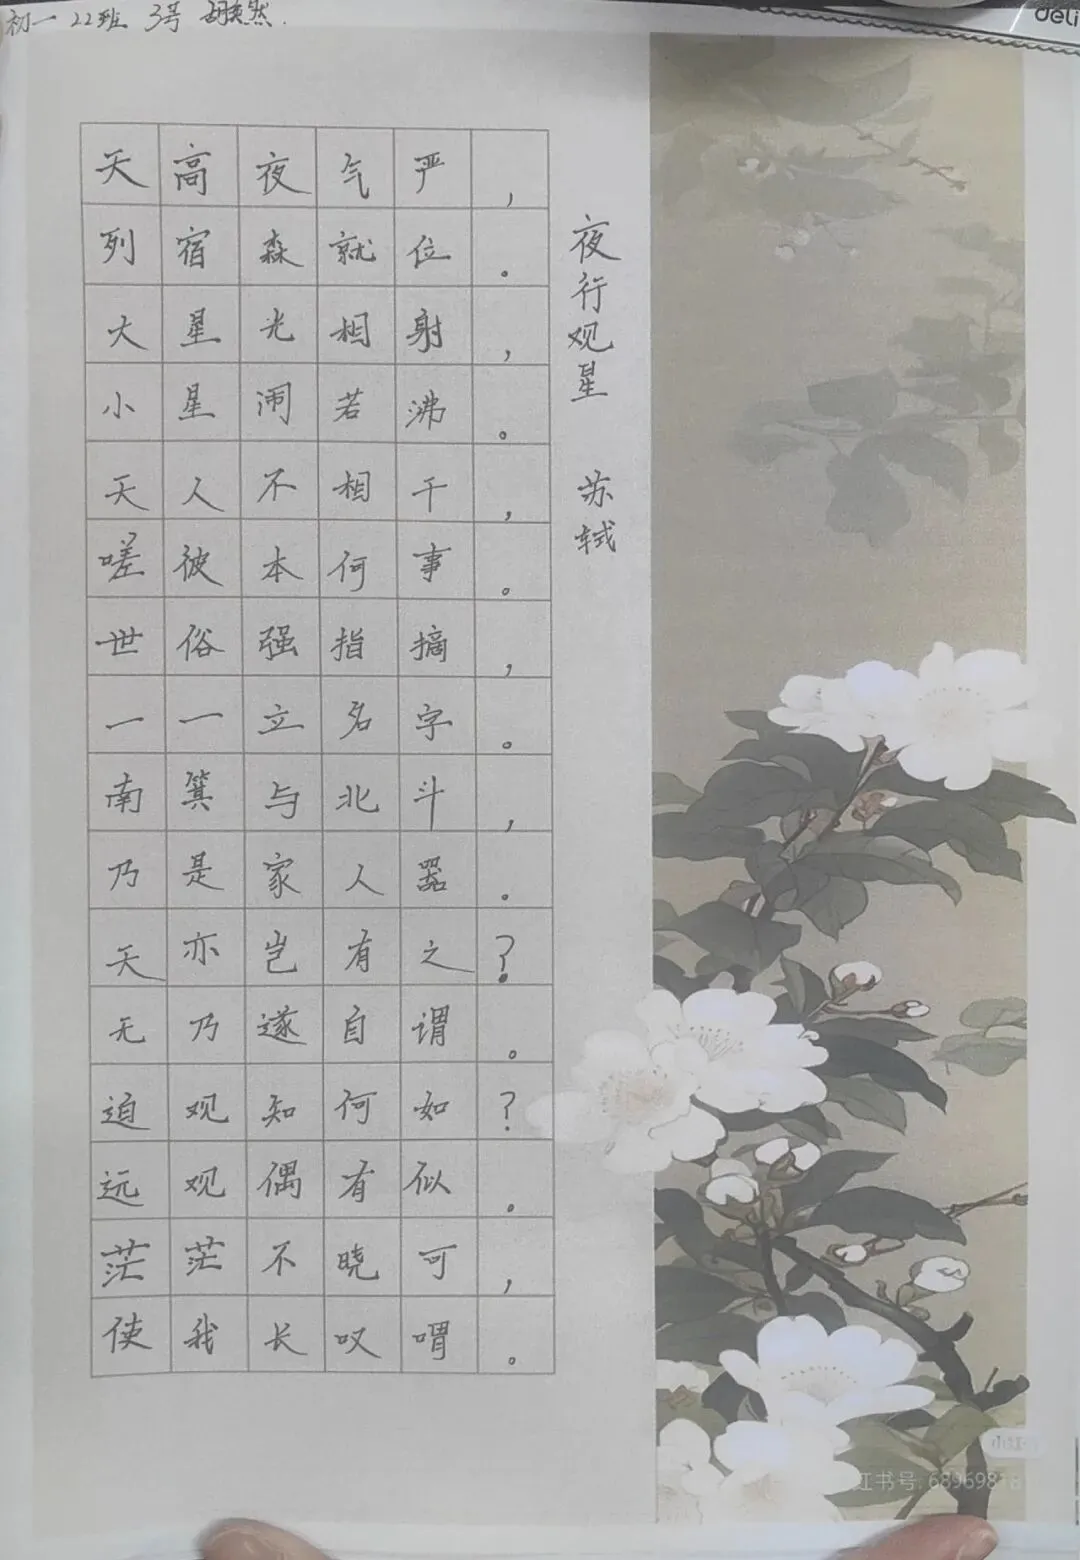 初一 22班 3号 胡奕然.
deli
夜行观星 苏轼
天高夜气严,
列宿森就位。
大星光相射,
小星闹若沸。
天人不相干,
嗟彼本何事。
世俗强指摘,
一一立名字。
南箕与北斗,
乃是家人器。
天亦岂有之?
无乃遂自谓。
迫观知何如?
远观偶有似。
茫茫不晓可,
使我长叹喟。
小红书
红书号: 6896981